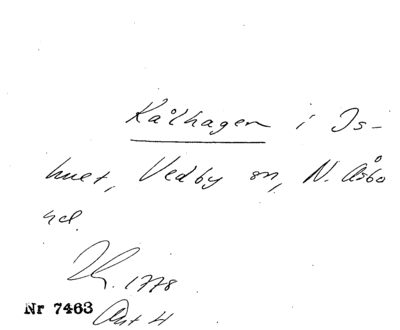 Kålhagen i Is-
huet, Vedby sn, N. Åsbo
hd.
1778
Nr 7463
Akt 4